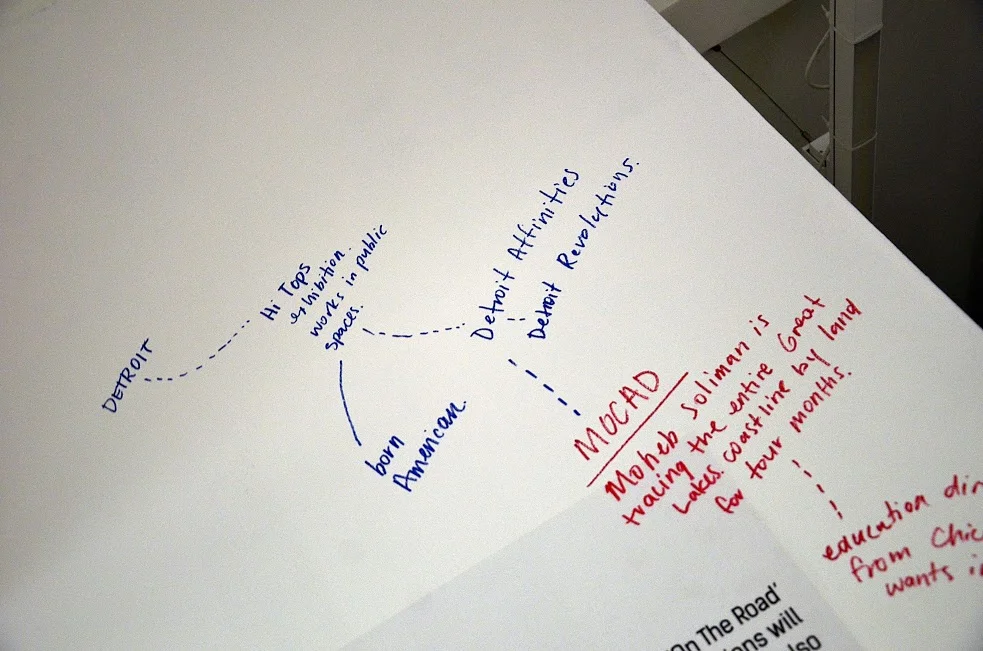 DETROIT
Hi Tops
exhibition.
works in public
spaces.
born
American.
Detroit Affinities
Detroit Revolutions.
MOCAD
Moheb Soliman is
tracing the entire Great
Lakes coastline by land
for four months.
education
from
wants
On The Road'
will